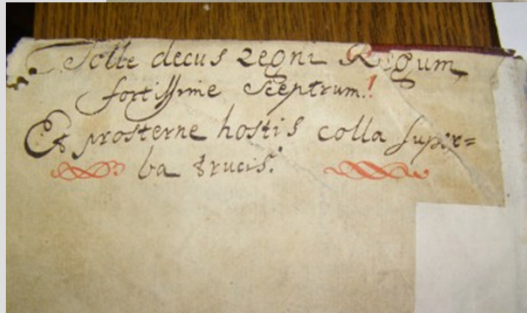 Tolle decus regni Regum
fortissime sceptrum!
Et prosterne hostis colla super=
ba trucis.